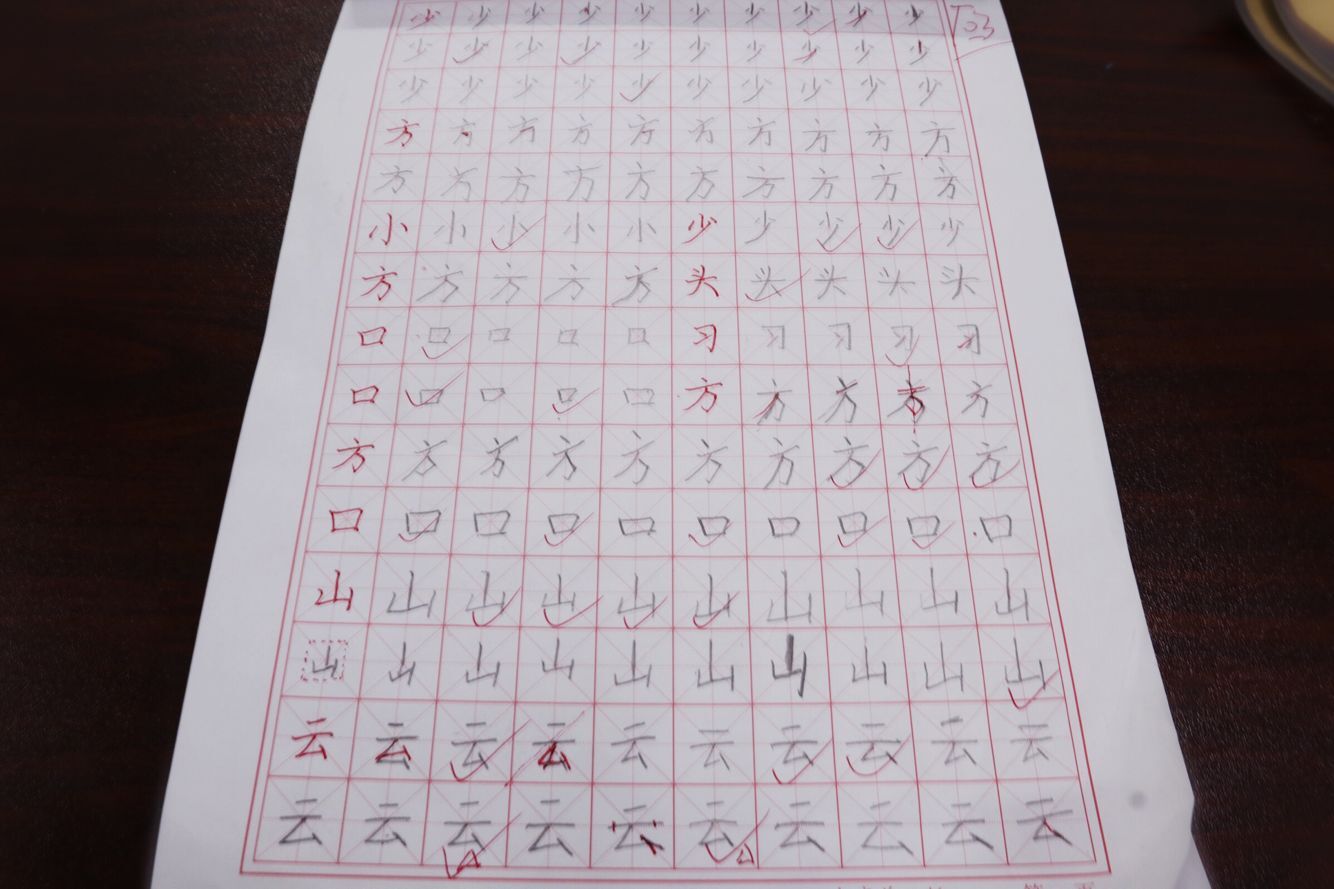 少少少少少少少少少少
少少少少少少少少少少
少少少少少少少少少少
方方方方方方方方方方
方方方方方方方方方方
小小小小小少少少少少
方方方方方头头头头头
口口口口口习习习习习
口口口口口方方方方方
方方方方方方方方方方
口口口口口口口口口口
山山山山山山山山山山
山山山山山山山山山山
云云云云云云云云云云
云云云云云云云云云云